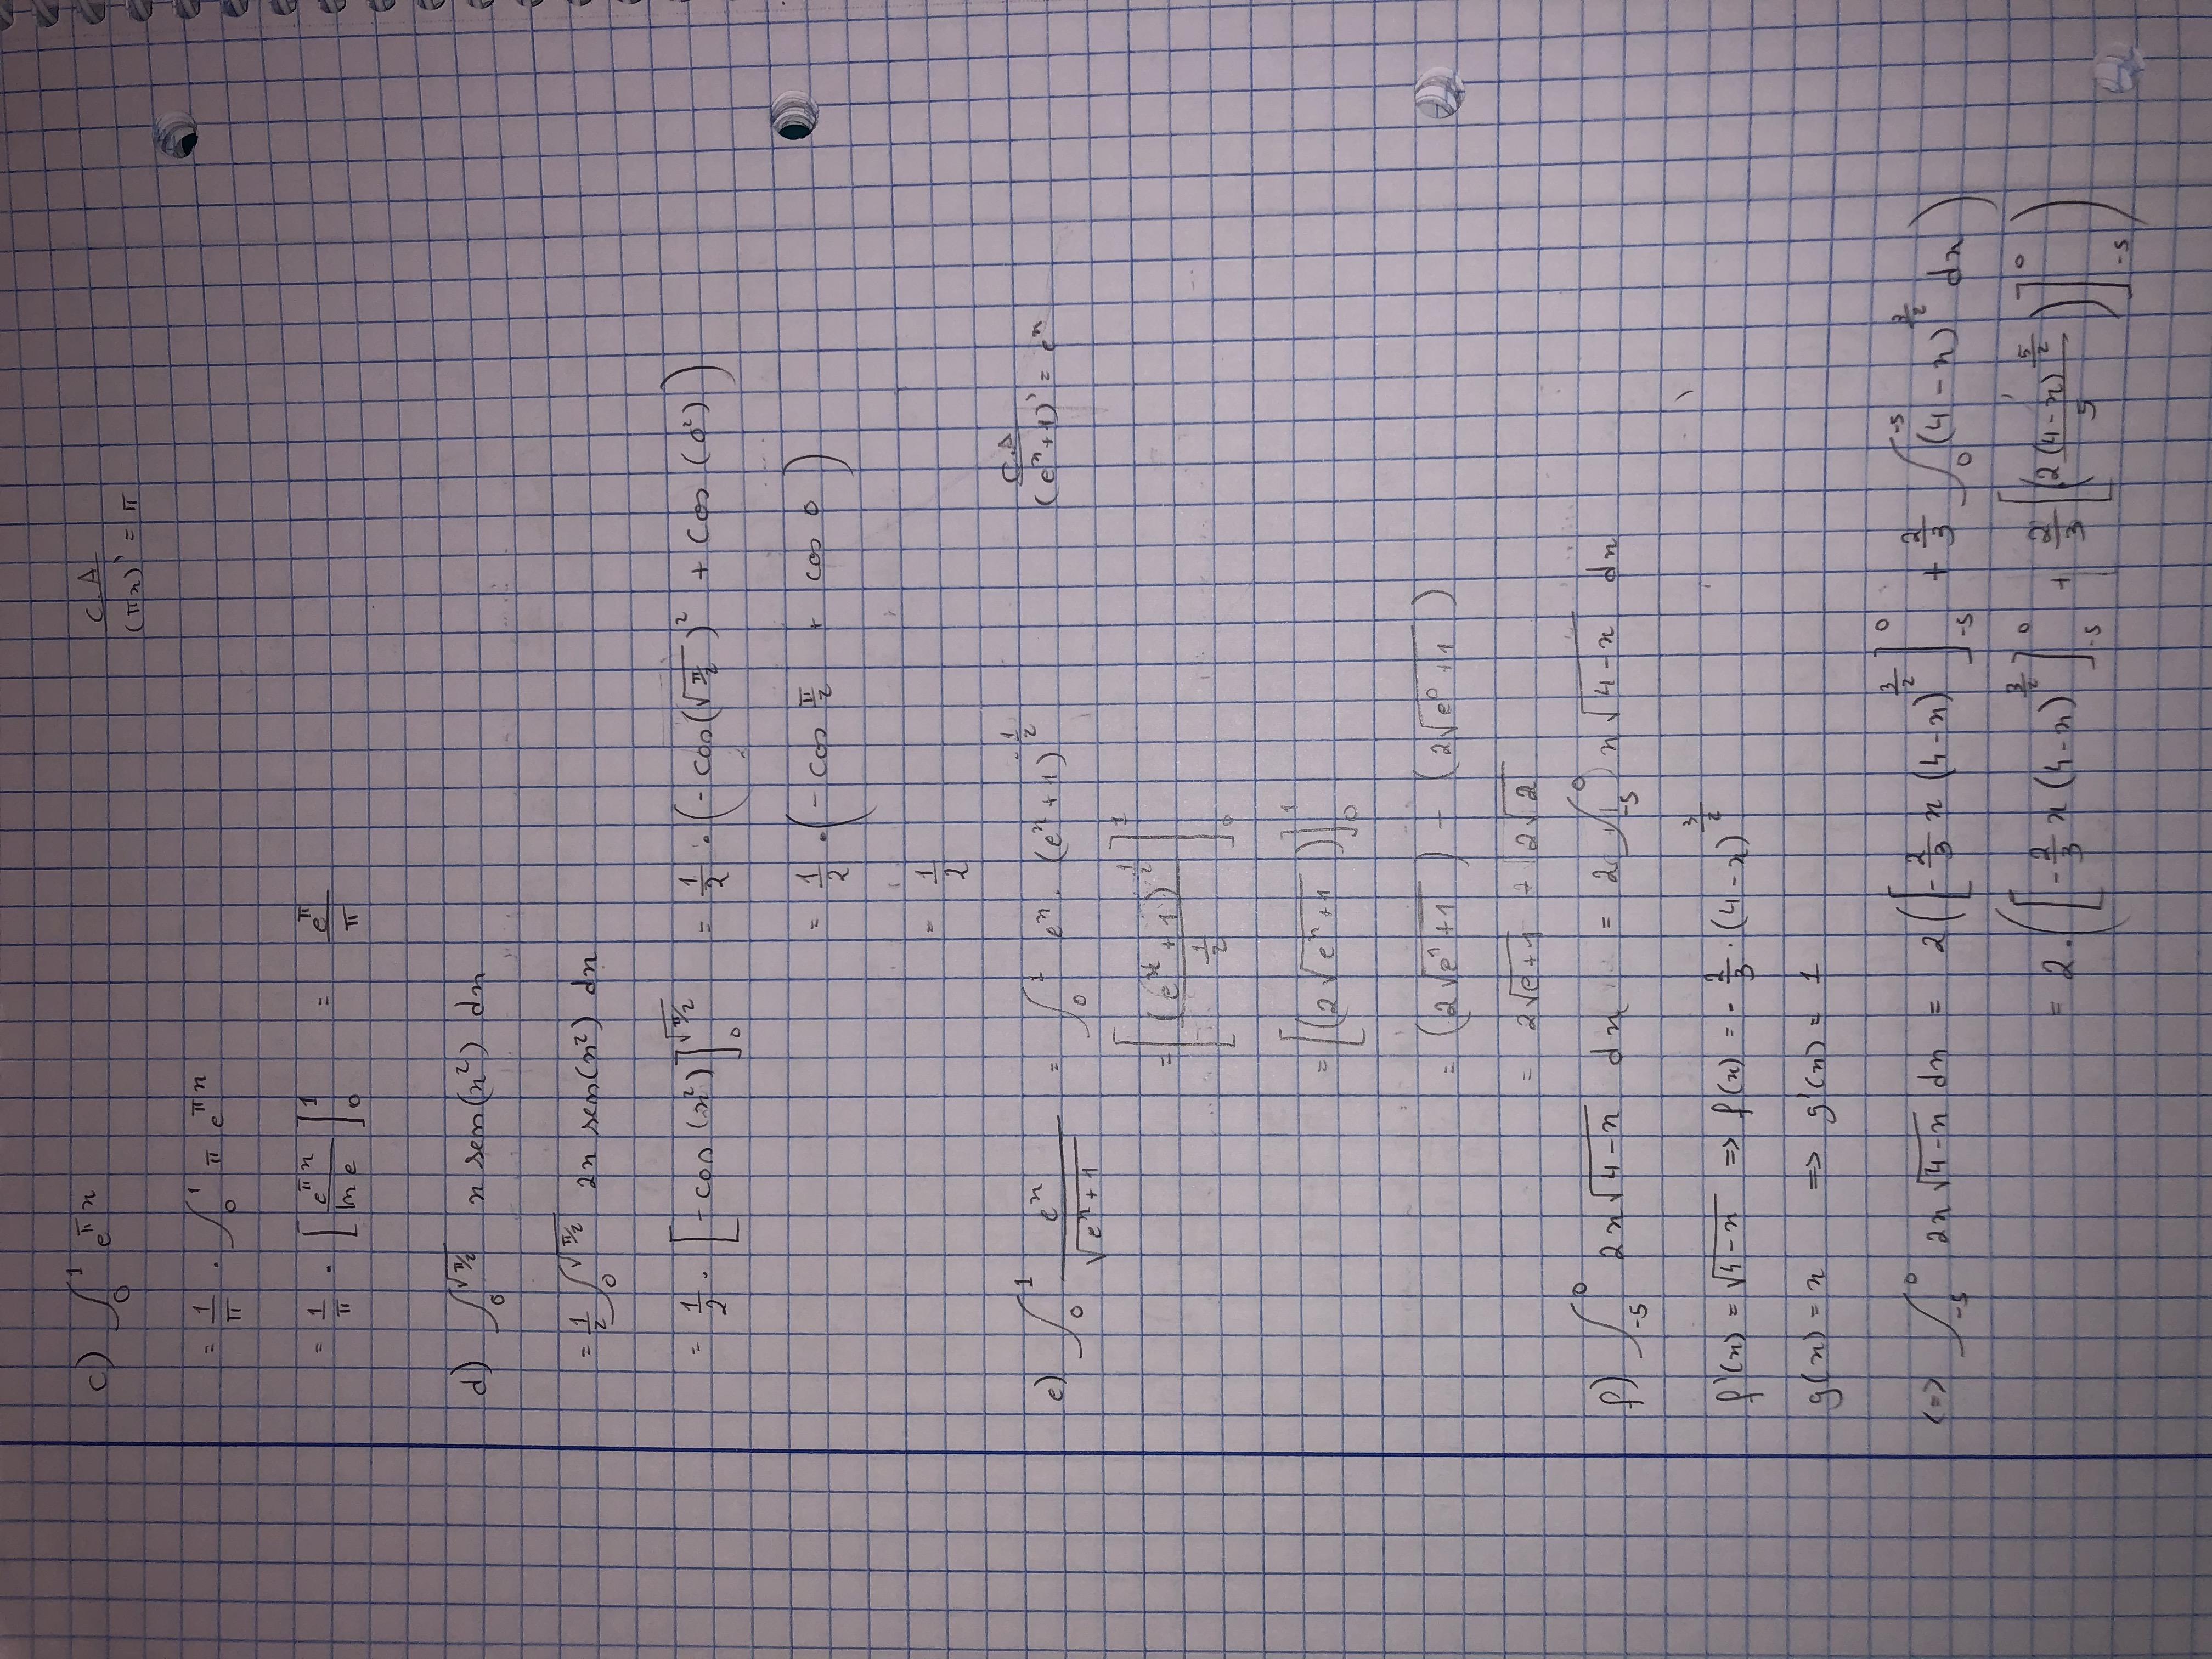 c) ∫₀¹ e^{πx}
C.A
(πx)' = π
= 1/π · ∫₀¹ π e^{πx}
= 1/π · [e^{πx}/ln e]₀¹ = e^π/π
d) ∫₀^{√π/2} x sen(x²) dx
= 1/2 ∫₀^{√π/2} 2x sen(x²) dx
= 1/2 · [-cos (x²)]₀^{√π/2} = 1/2 · (-cos(√π/2)² + cos (0²))
= 1/2 · (-cos π/2 + cos 0)
= 1/2
e) ∫₀¹ e^x/√(e^x+1) = ∫₀¹ e^x · (e^x+1)^{-1/2}
C.A
(e^x+1)' = e^x
= [(e^x+1)^{1/2}/(1/2)]₀¹
= [(2√(e^x+1))]₀¹
= (2√(e¹+1)) - (2√(e⁰+1))
= 2√(e+1) - 2√2
f) ∫₋₅⁰ 2x√(4-x) dx = 2 ∫₋₅⁰ x√(4-x) dx
f'(x) = √(4-x) => f(x) = -2/3 · (4-x)^{3/2}
g(x) = x => g'(x) = 1
<=> ∫₋₅⁰ 2x√(4-x) dx = 2([-2/3 x (4-x)^{3/2}]₋₅⁰ + 2/3 ∫₀⁻⁵ (4-x)^{3/2} dx)
= 2·([-2/3 x (4-x)^{3/2}]₋₅⁰ + 2/3 [(2(4-x)^{5/2}/5)]₋₅⁰)